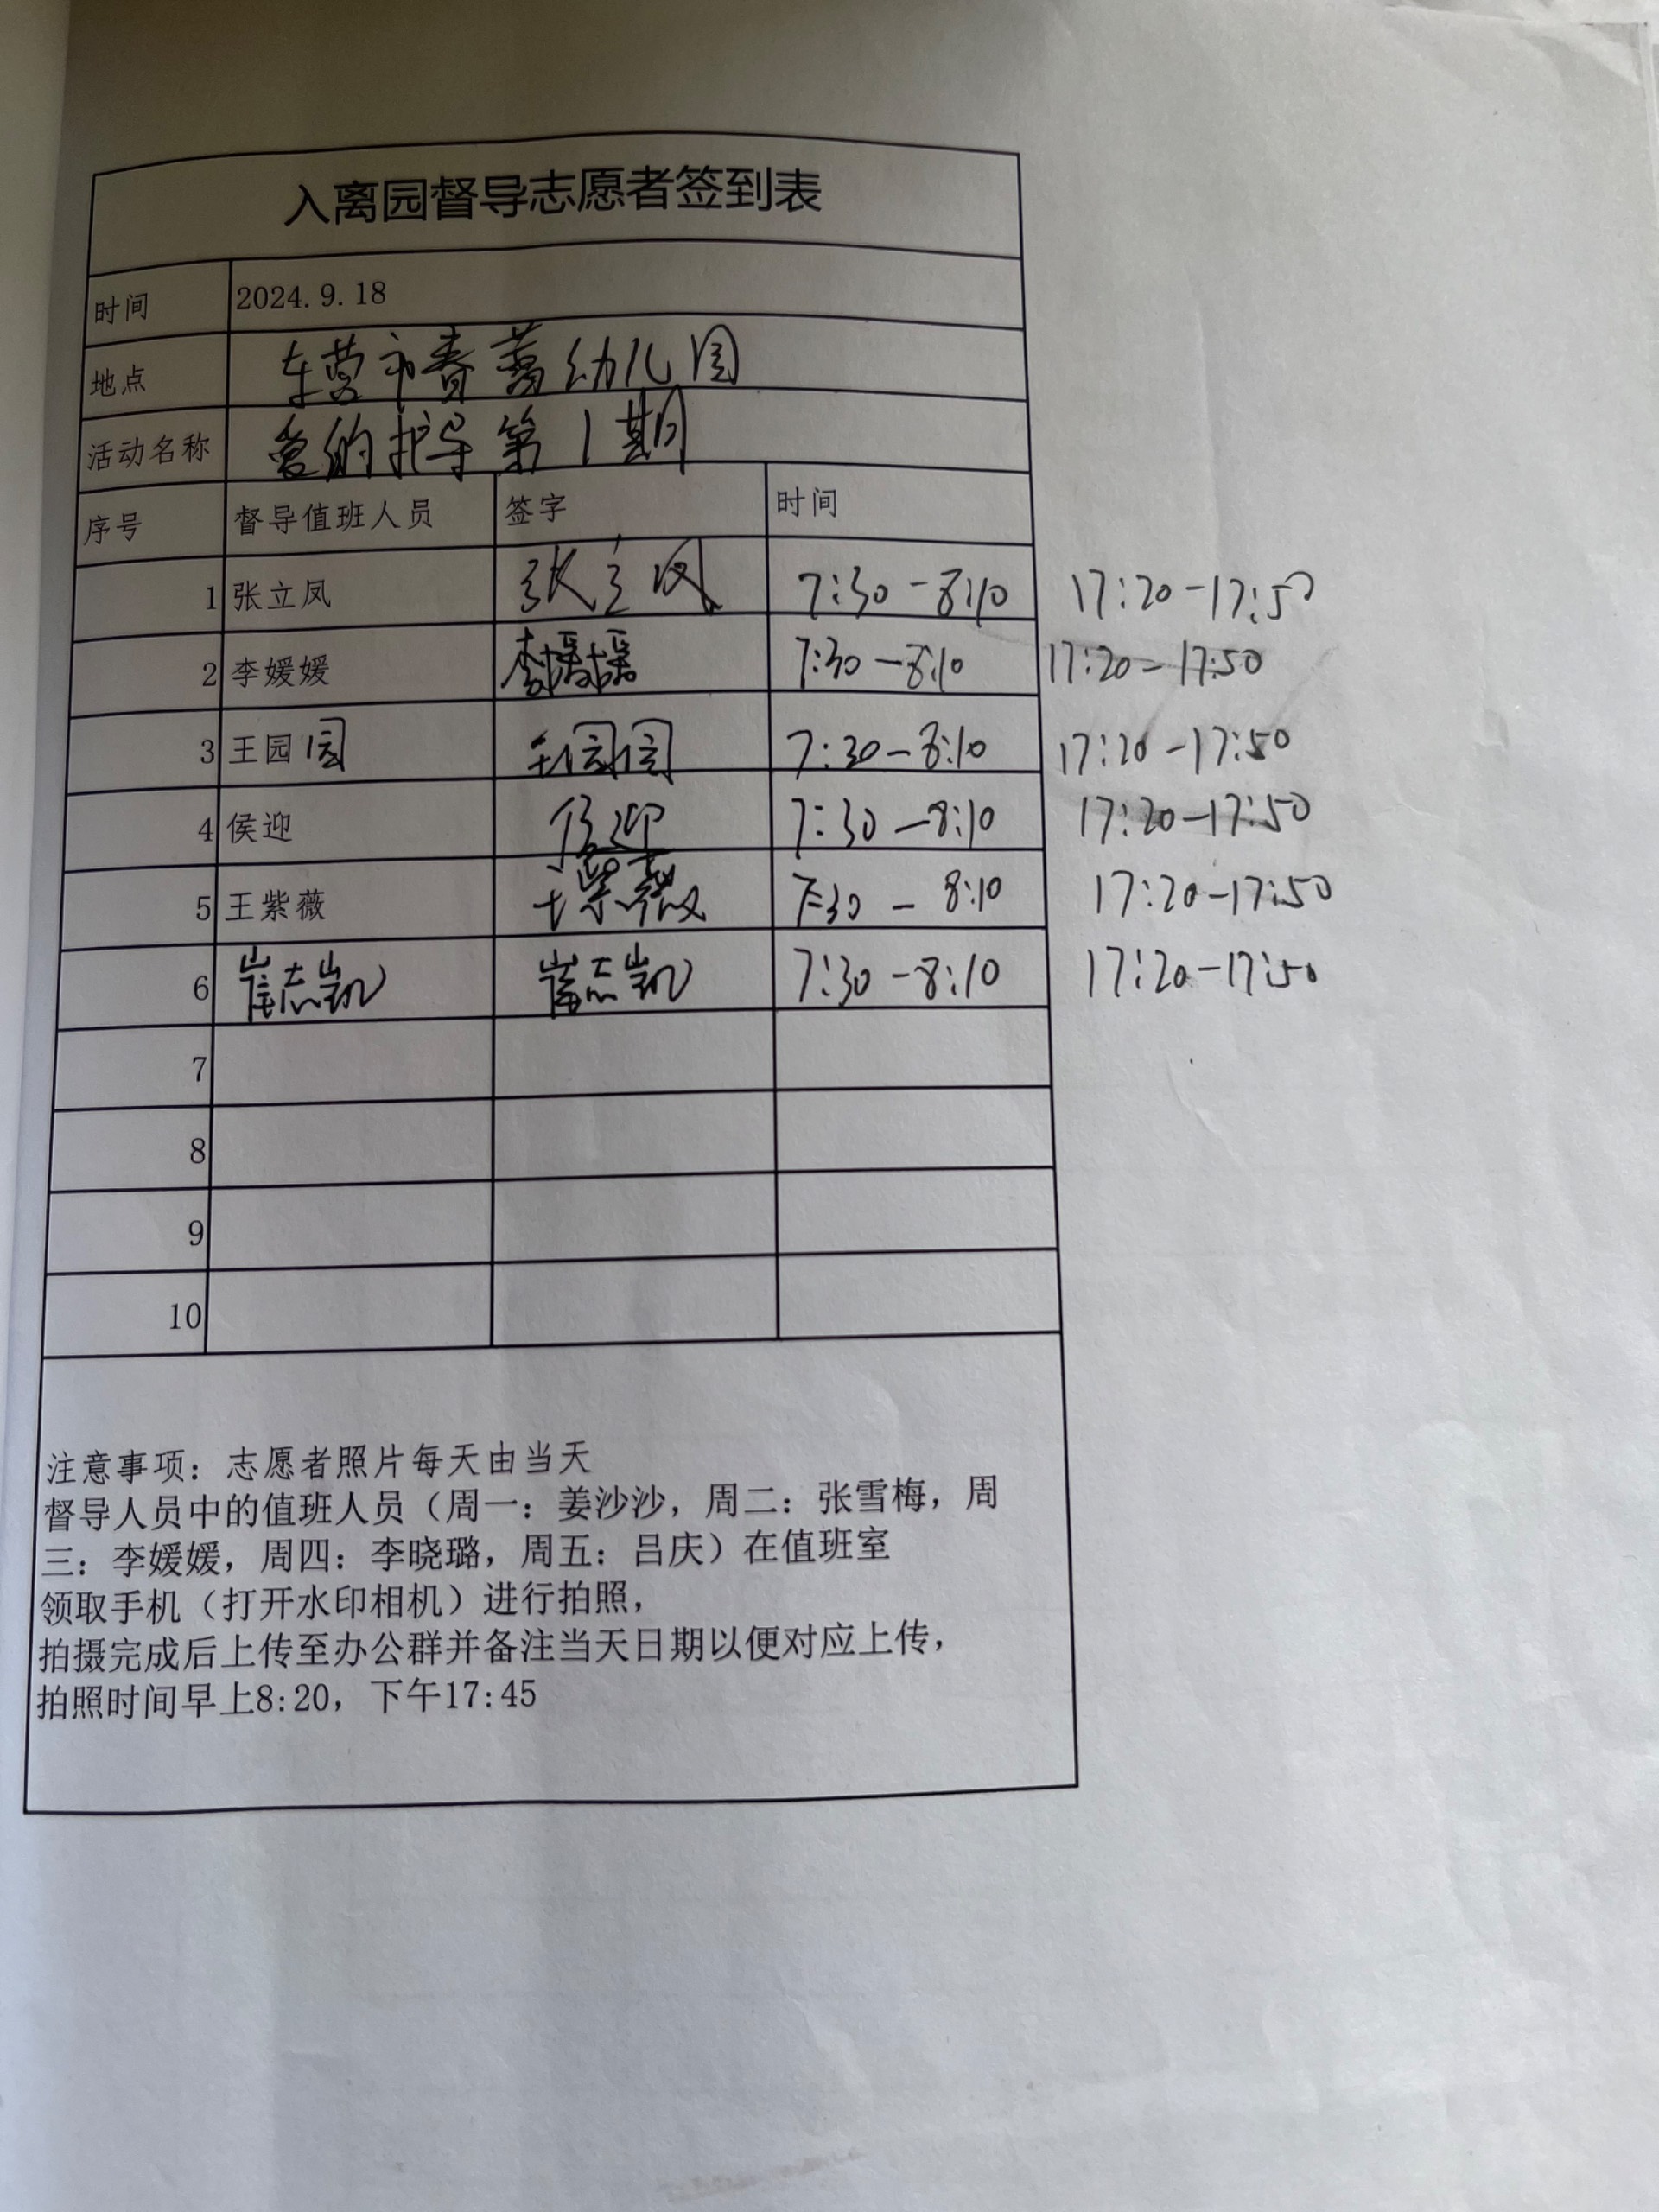 入离园督导志愿者签到表
时间 2024.9.18
地点 东营市春蕾幼儿园
活动名称 爱的护导第1期
序号 督导值班人员 签字 时间
1 张立凤 张立凤 7:30-8:10 17:20-17:50
2 李媛媛 李媛媛 7:30-8:10 17:20-17:50
3 王园园 王园园 7:30-8:10 17:20-17:50
4 侯迎 侯迎 7:30-8:10 17:20-17:50
5 王紫薇 王紫薇 7:30-8:10 17:20-17:50
6 崔志凯 崔志凯 7:30-8:10 17:20-17:50
7
8
9
10
注意事项：志愿者照片每天由当天
督导人员中的值班人员（周一：姜沙沙，周二：张雪梅，周
三：李媛媛，周四：李晓璐，周五：吕庆）在值班室
领取手机（打开水印相机）进行拍照，
拍摄完成后上传至办公群并备注当天日期以便对应上传，
拍照时间早上8:20，下午17:45